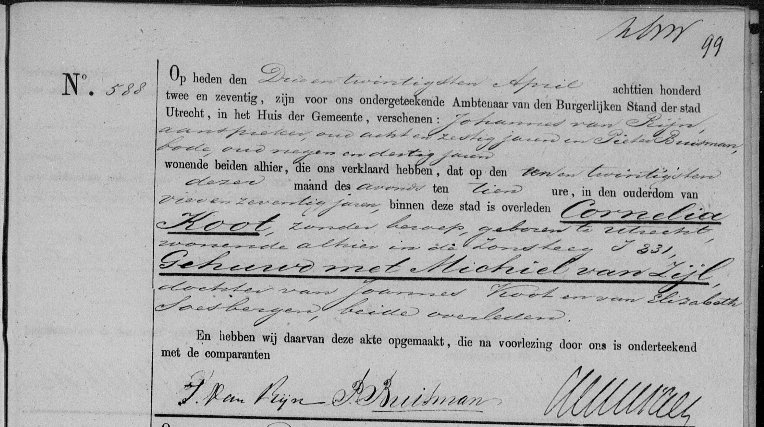 99
N.o 588
Op heden den Drie en twintigsten April achttien honderd
twee en zeventig, zijn voor ons ondergeteekende Ambtenaar van den Burgerlijken Stand der stad
Utrecht, in het Huis der Gemeente, verschenen: Johannes van Rijn,
aanspreker, oud acht en zestig jaren en Pieter Buisman,
bode, oud negen en dertig jaren
wonende beiden alhier, die ons verklaard hebben, dat op den een en twintigsten
dezer maand des avonds ten tien ure, in den ouderdom van
vier en zeventig jaren, binnen deze stad is overleden Cornelia
Koot, zonder beroep, geboren te Utrecht,
wonende alhier in de Zonsteeg I 331,
Gehuwd met Michiel van Zijl,
dochter van Joannes Koot en van Elizabeth
Soesbergen, beide overleden.
En hebben wij daarvan deze akte opgemaakt, die na voorlezing door ons is onderteekend
met de comparanten
J. van Rijn P. Buisman